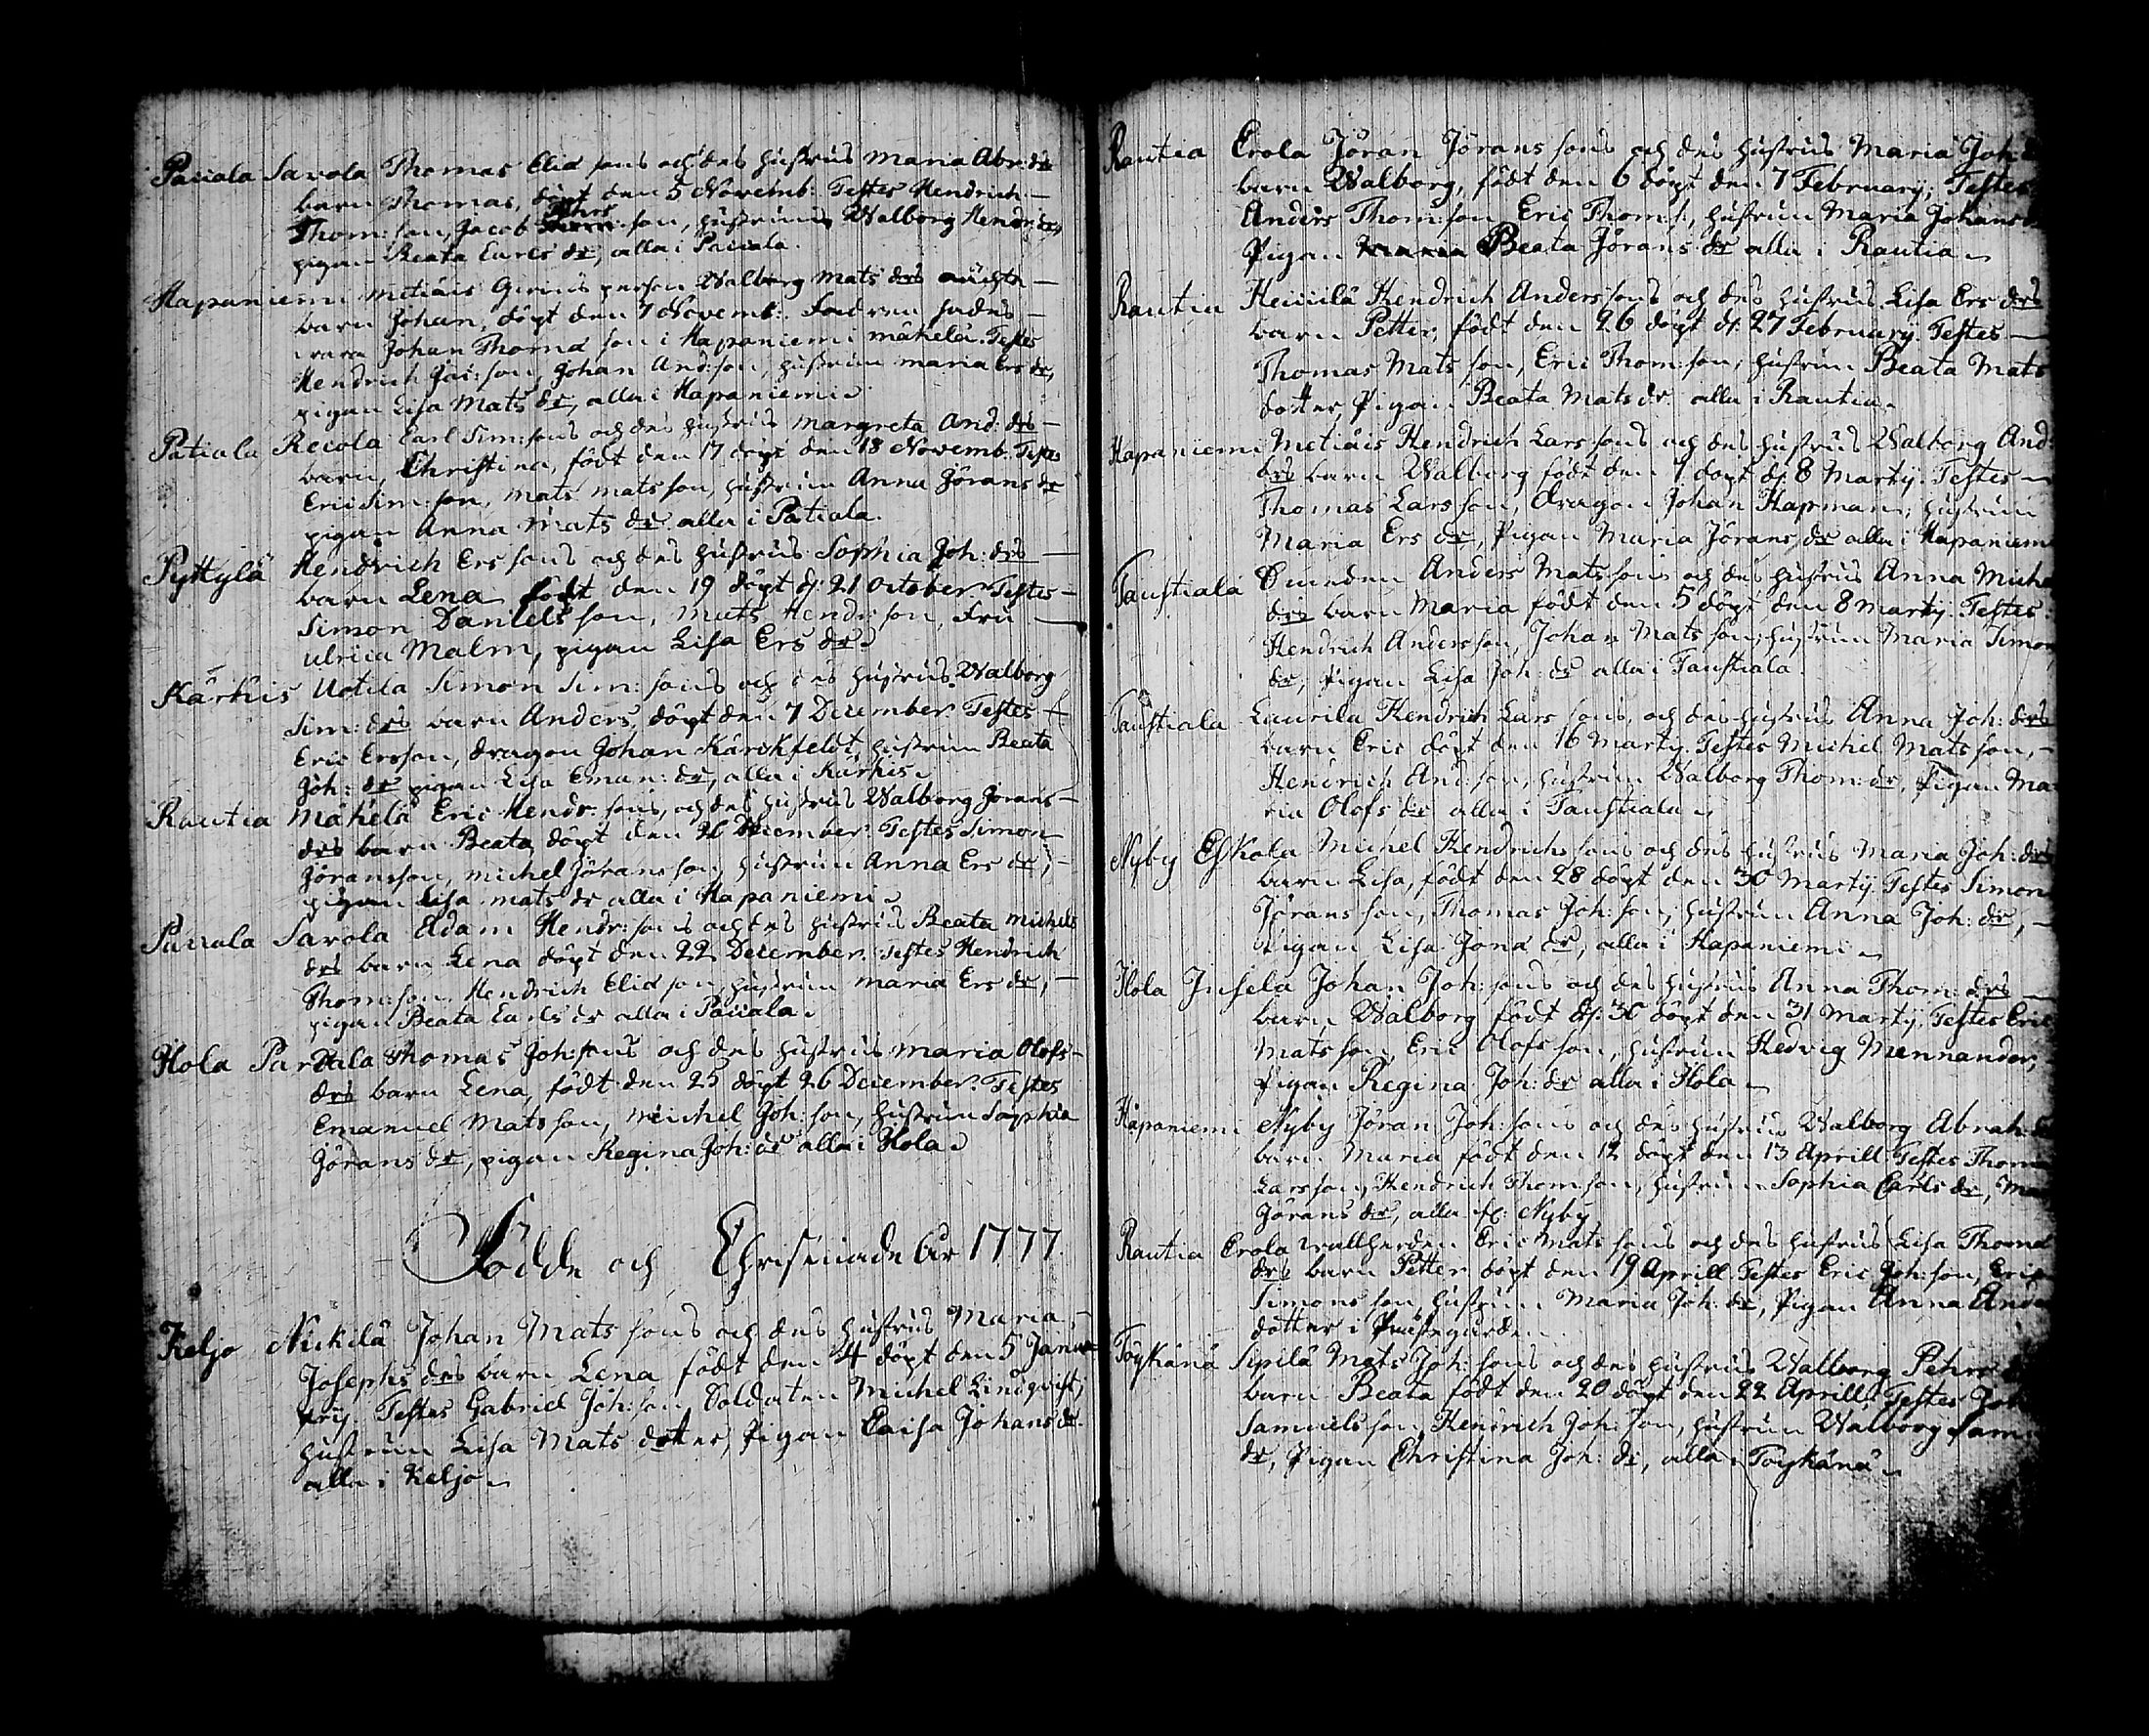 Pacala Savola Thomas Elia sons och des hustrus Maria Abr: drs
barn Thomas, döpt den 5 Novemb: Testes Hendrich
Thom: son, Jacob Pehrs son, hustrun Walborg Hendr: dr
pigan Beata Carls dr, alla i Pacala
Hapaniemi Metiäis qvins person Walborg Mats drs oächta
barn Johan, döpt den 7 Novemb: Fadren sades
vara Johan Thoma son i Hapaniemi Mäkelä. Testes
Hendrich Jac: son, Johan And: son, hustrun Maria Ers dr,
pigan Lisa Mats dr, alla i Hapaniemi
Patiala Recola Carl Sim: sons och des hustrus Margreta And: drs
barn, Christina, födt den 17 döpt den 18 Novemb. Testes
Eric Sim: son, Mats Mats son, hustrun Anna Jörans dr
pigan Anna Mats dr alla i Patiala.
Pyttylä Hendrich Ers sons och des hustrus Sophia Joh: drs
barn Lena födt den 19 döpt d: 21 October. Testes
Simon Daniels son, Mats Hendr: son, Fru
Ulrica Malm, pigan Lisa Ers dr
Kärkis Uotila Simon Sim: sons och des hustrus Walborg
Sim: drs barn Anders, döpt den 7 December. Testes
Eric Ersson, Dragon Johan Karckfeldt, hustrun Beata
Joh: dr pigan Lisa Eman: dr, alla i Kärkis
Rautia Mäkelä Eric Hendr: sons, och des hustrus Walborg Jörans
drs barn Beata döpt den 26 December. Testes Simon
Jöransson, Michel Jörans son, hustrun Anna Ers dr,
pigan Lisa Mats dr alla i Hapaniemi
Pacala Savola Adam Hendr: sons och des hustrus Beata Michels
drs barn Lena döpt den 22 December. Testes Hendrich
Thom: son, Hendrich Elia son, hustrun Maria Ers dr,
pigan Beata Carls dr alla i Pacala
Hola Pardala Thomas Joh: sons och des hustrus Maria Olofs
drs barn Lena, födt den 25 döpt 26 December. Testes
Emanuel Mats son, Michel Joh: son, hustrun Sophia
Jörans dr, pigan Regina Joh: dr alla i Hola
Födde och Christnade År 1777.
Keljo Nickilä Johan Mats sons och des hustrus Maria
Josephs drs barn Lena födt den 4 döpt den 5 Janua
rÿ. Testes Gabriel Joh: son, Soldaten Michel Lindqvist,
hustrun Lisa Mats dotter, Pigan Caisa Johans dr.
alla i Keljo
Rautia Erola Jöran Jörans sons och des hustrus Maria Joh
barn Walborg, födt den 6 döpt den 7 Februarÿ, Testes
Anders Thom: son, Eric Thom: s:, hustrun Maria Johans
Pigan Beata Jörans dr alla i Rautia
Rautia Heickilä Hendrich Anders sons och des hustrus Lisa Ers drs
barn Petter, födt den 26 döpt d: 27 Februarÿ. Testes
Thomas Mats son, Eric Thom: son, hustrun Beata Mats
dotter, Pigan Beata Mats dr. alla i Rautia
Hapaniemi Metiäis Hendrich Lars sons och des hustrus Walborg And:
drs barn Walborg födt den 7 döpt d: 8 Martÿ. Testes
Thomas Larsson, Dragon Johan Hapman, hustrun
Maria Ers dr, Pigan Maria Jörans dr alla i Hapaniemi
Taustiala Smeden Anders Mats sons och des hustrus Anna Miche
drs barn Maria födt den 5 döpt den 8 Martÿ. Testes
Hendrich Andersson, Johan Mats son, hustrun Maria Simon
dr, Pigan Lisa Joh: dr alla i Taustiala.
Taustiala Laurila Hendrich Lars sons, och des hustrus Anna Joh: drs
barn Eric döpt den 16 Martÿ. Testes Michel Mats son,
Hendrich And: son, hustrun Walborg Thom: dr, Pigan Ma
ria Olofs dr alla i Taustiala
Nyby Eskola Michel Hendrichs sons och des hustrus Maria Joh: drs
barn Lisa, födt den 28 döpt den 30 Martÿ. Testes Simon
Jörans son, Thomas Joh: son, hustrun Anna Joh: dr,
Pigan Lisa Jona dr, alla i Hapaniemi
Hola Jusela Johan Joh: sons och des hustrus Anna Thom: drs
barn Walborg födt d: 30 döpt den 31 Martÿ. Testes Eric
Mats son, Eric Olofs son, hustrun Hedvig Mennander,
Pigan Regina Joh: dr alla i Hola
Hapaniemi Nyby Jöran Joh: sons och des hustrus Walborg Abrah:
barn Maria födt den 12 döpt den 13 Aprill. Testes Thoma
Larsson, Hendrich Thom: son, hustrun Sophia Carls dr, Ma
Jörans dr, alla fr: Nyby
Rautia Erola vallherden Eric Mats sons och des hustrus Lisa Thoma
drs barn Petter döpt den 19 Aprill. Testes Eric Joh: son, Eric
Simons son, hustrun Maria Joh: dr, Pigan Anna Ande
dotter i Prästegården
Töykänä Sipilä Mats Joh: sons och des hustrus Walborg Pehrs
barn Beata födt den 20 döpt den 22 Aprill. Testes Joh
Samuels son, Hendrich Joh: son, hustrun Walborg Sam
dr, Pigan Christina Joh: dr, alla i Töykänä